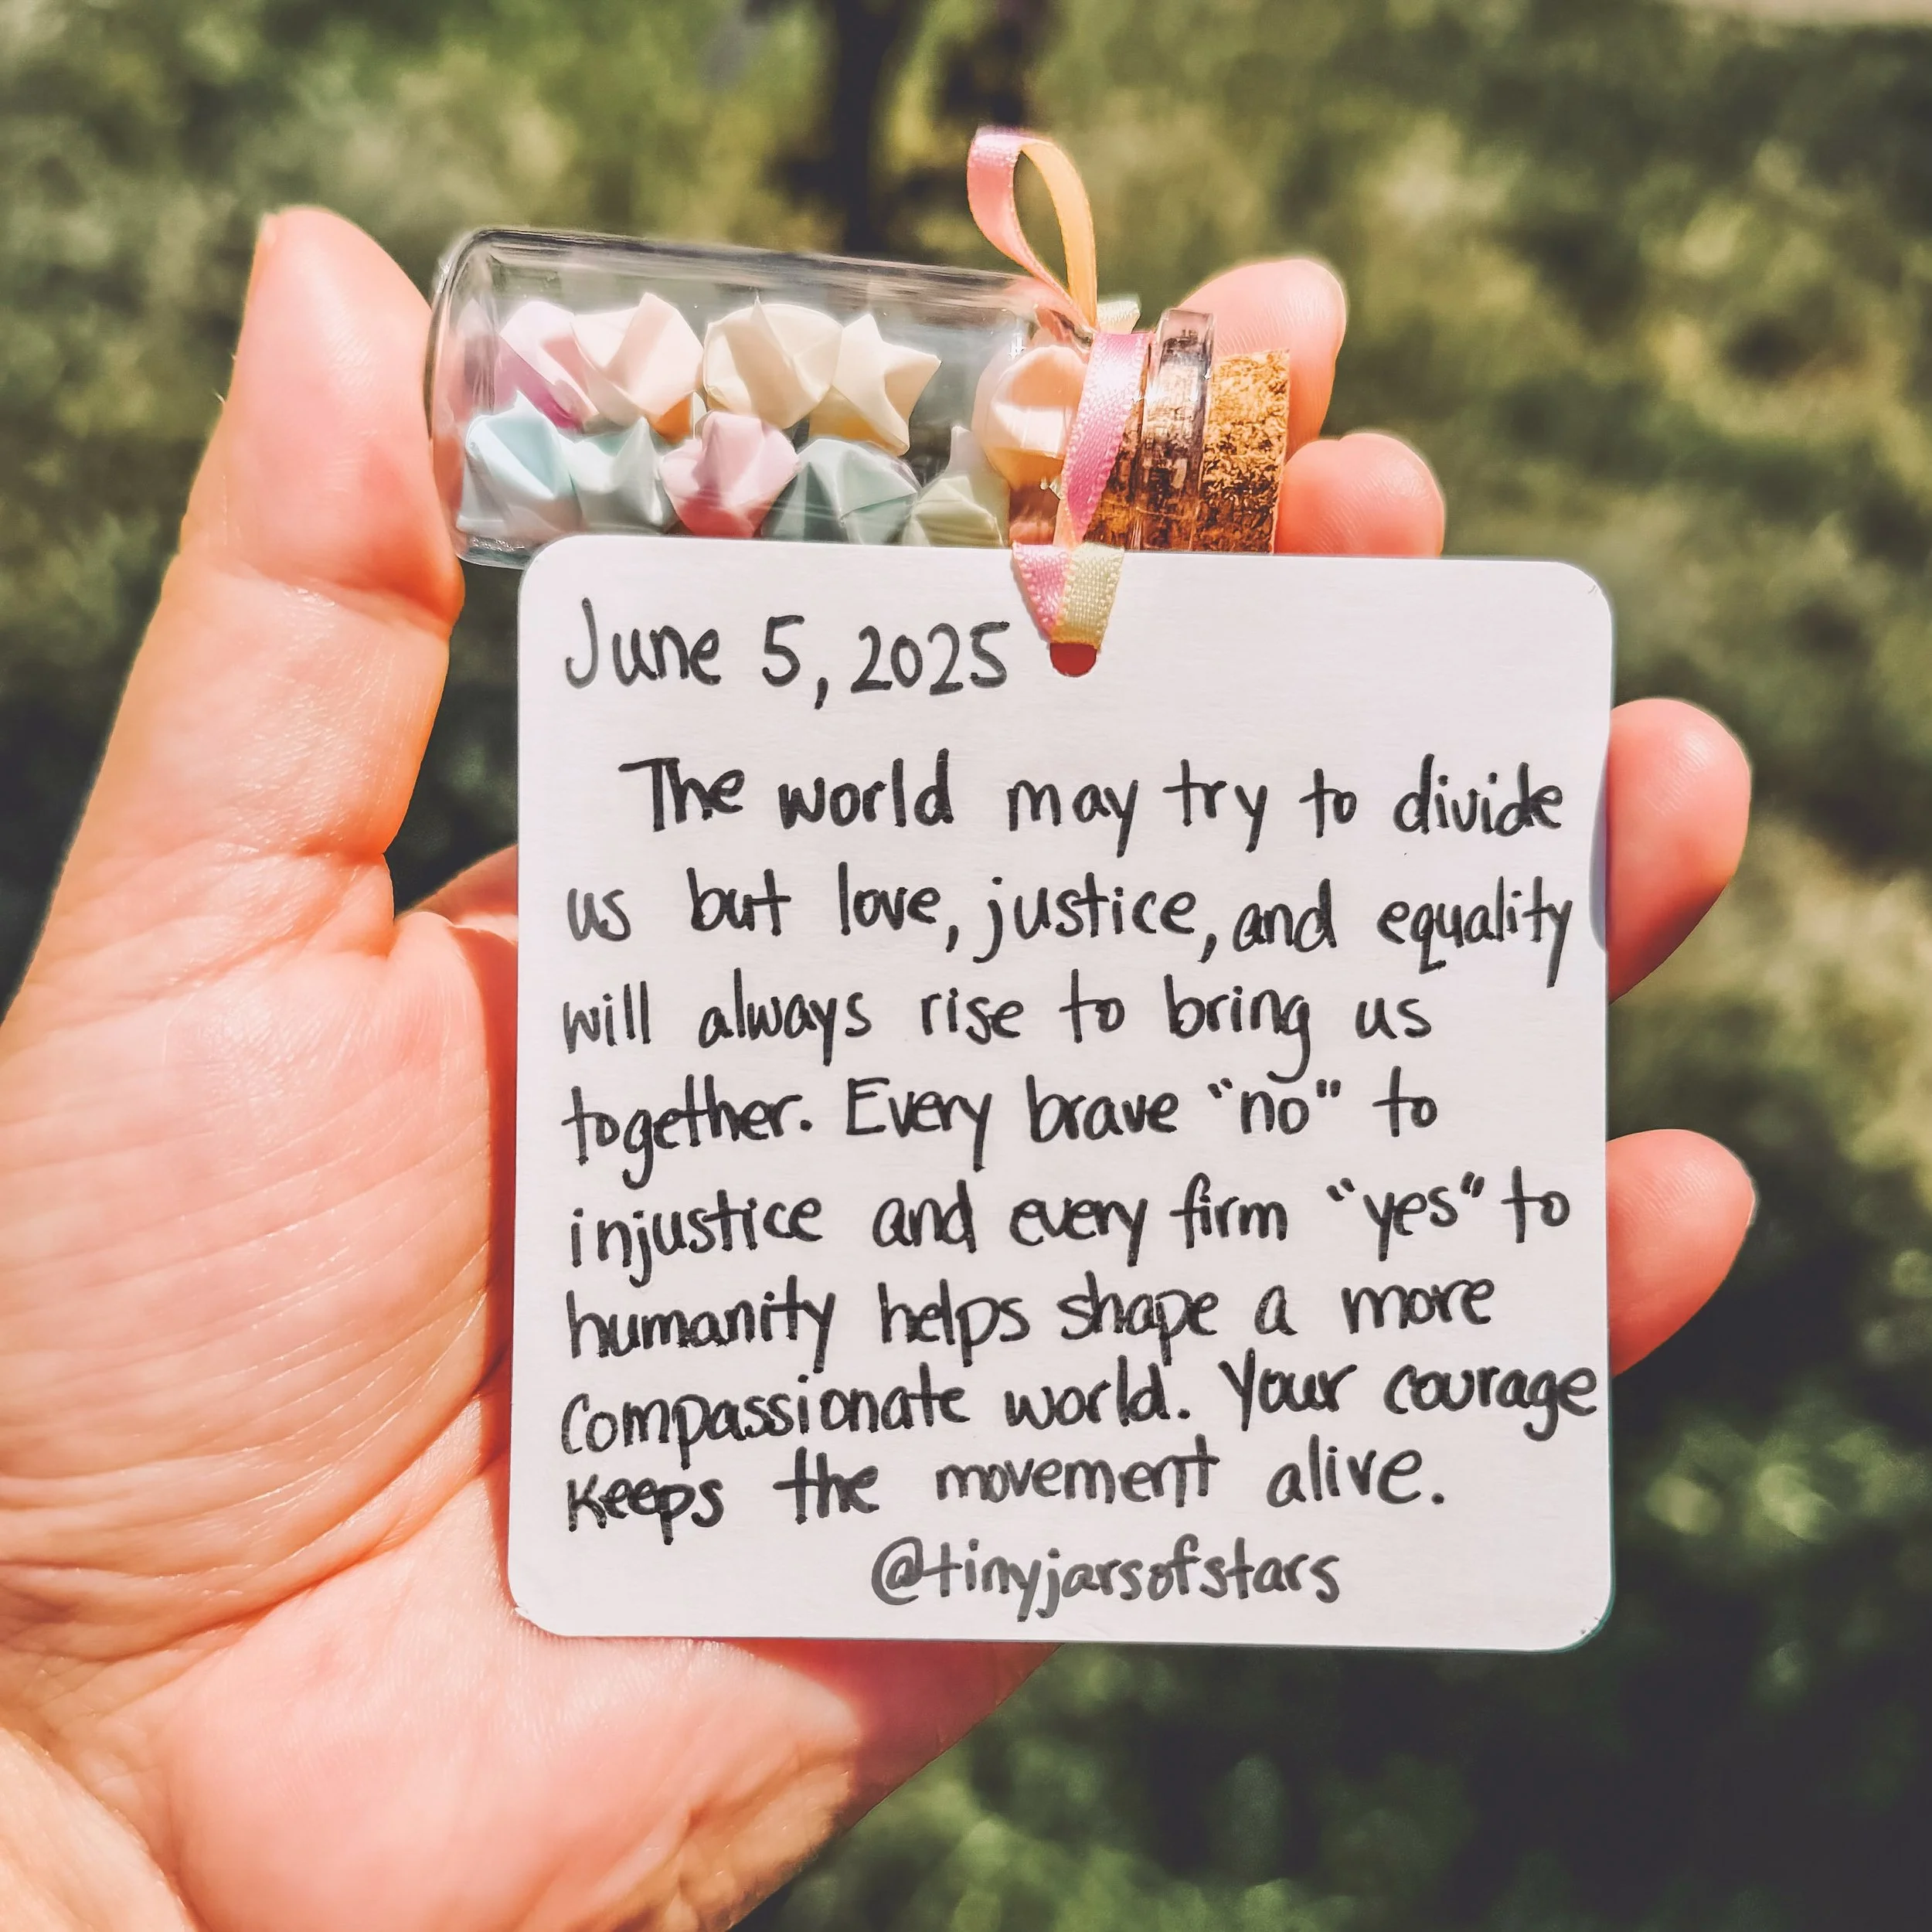 June 5, 2025
The world may try to divide
us but love, justice, and equality
will always rise to bring us
together. Every brave "no" to
injustice and every firm "yes" to
humanity helps shape a more
compassionate world. Your courage
keeps the movement alive.
@tinyjarsofstars